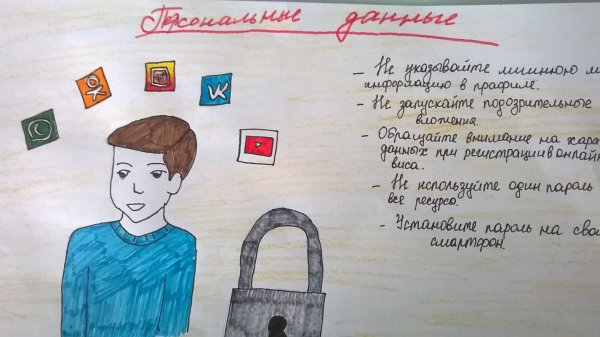 Персональные данные
- Не указывайте лишнюю
информацию в профиле.
- Не запускайте подозрительные
вложения.
- Обращайте внимание на
данных при регистрации в онлайн
виса.
- Не используйте один пароль
все ресурсы.
- Установите пароль на
смартфон.